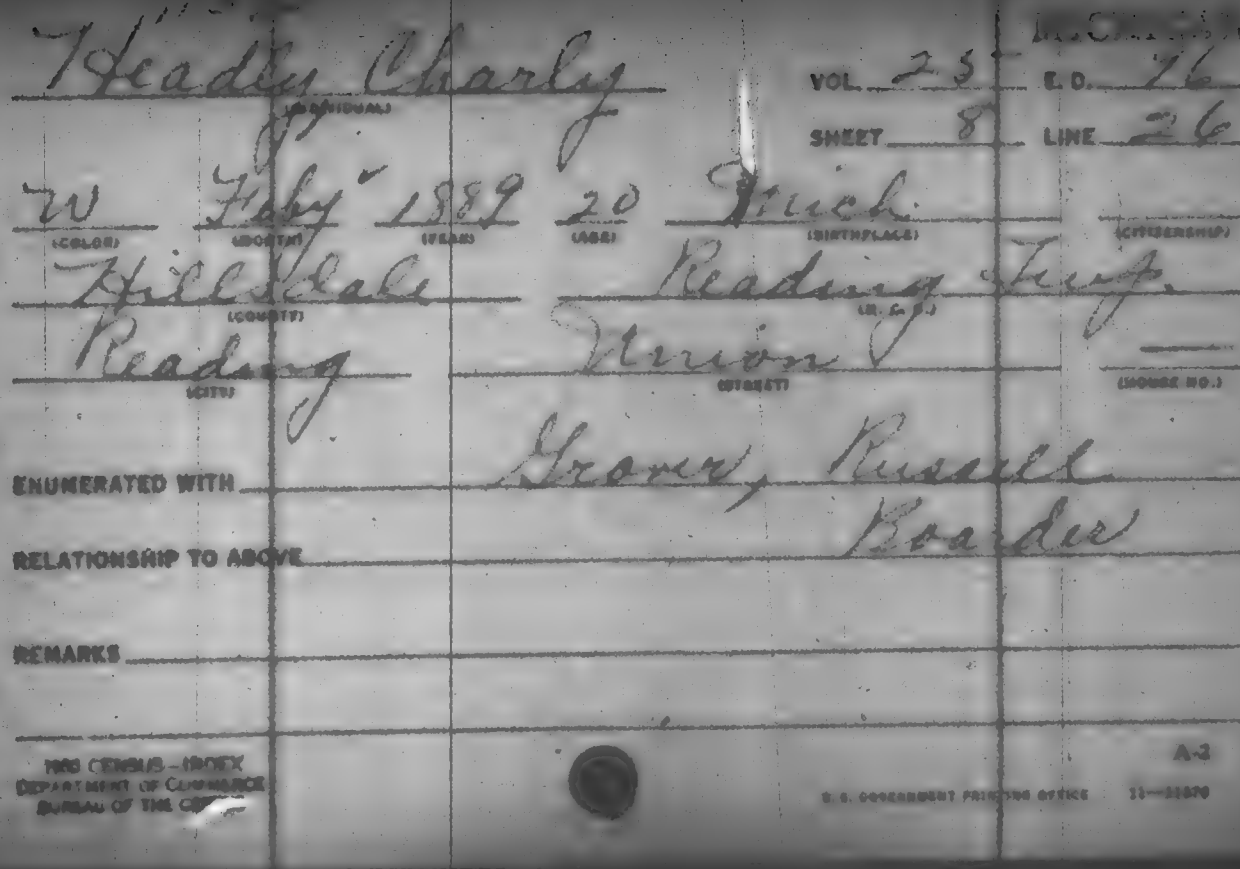 Headly Charly
(INDIVIDUAL)
VOL. 25 E. D. 76
SHEET 8 LINE 26
W Feby 1889 20 Mich.
(COLOR) (MONTH) (YEAR) (AGE) (BIRTHPLACE) (CITIZENSHIP)
Hillsdale Reading Twp.
(COUNTY) (M. C. D.)
Reading Union —
(CITY) (STREET) (HOUSE NO.)
ENUMERATED WITH Grover, Russell
RELATIONSHIP TO ABOVE Boarder
REMARKS
A-2
1900 CENSUS—INDEX
DEPARTMENT OF COMMERCE
BUREAU OF THE
U. S. GOVERNMENT PRINTING OFFICE